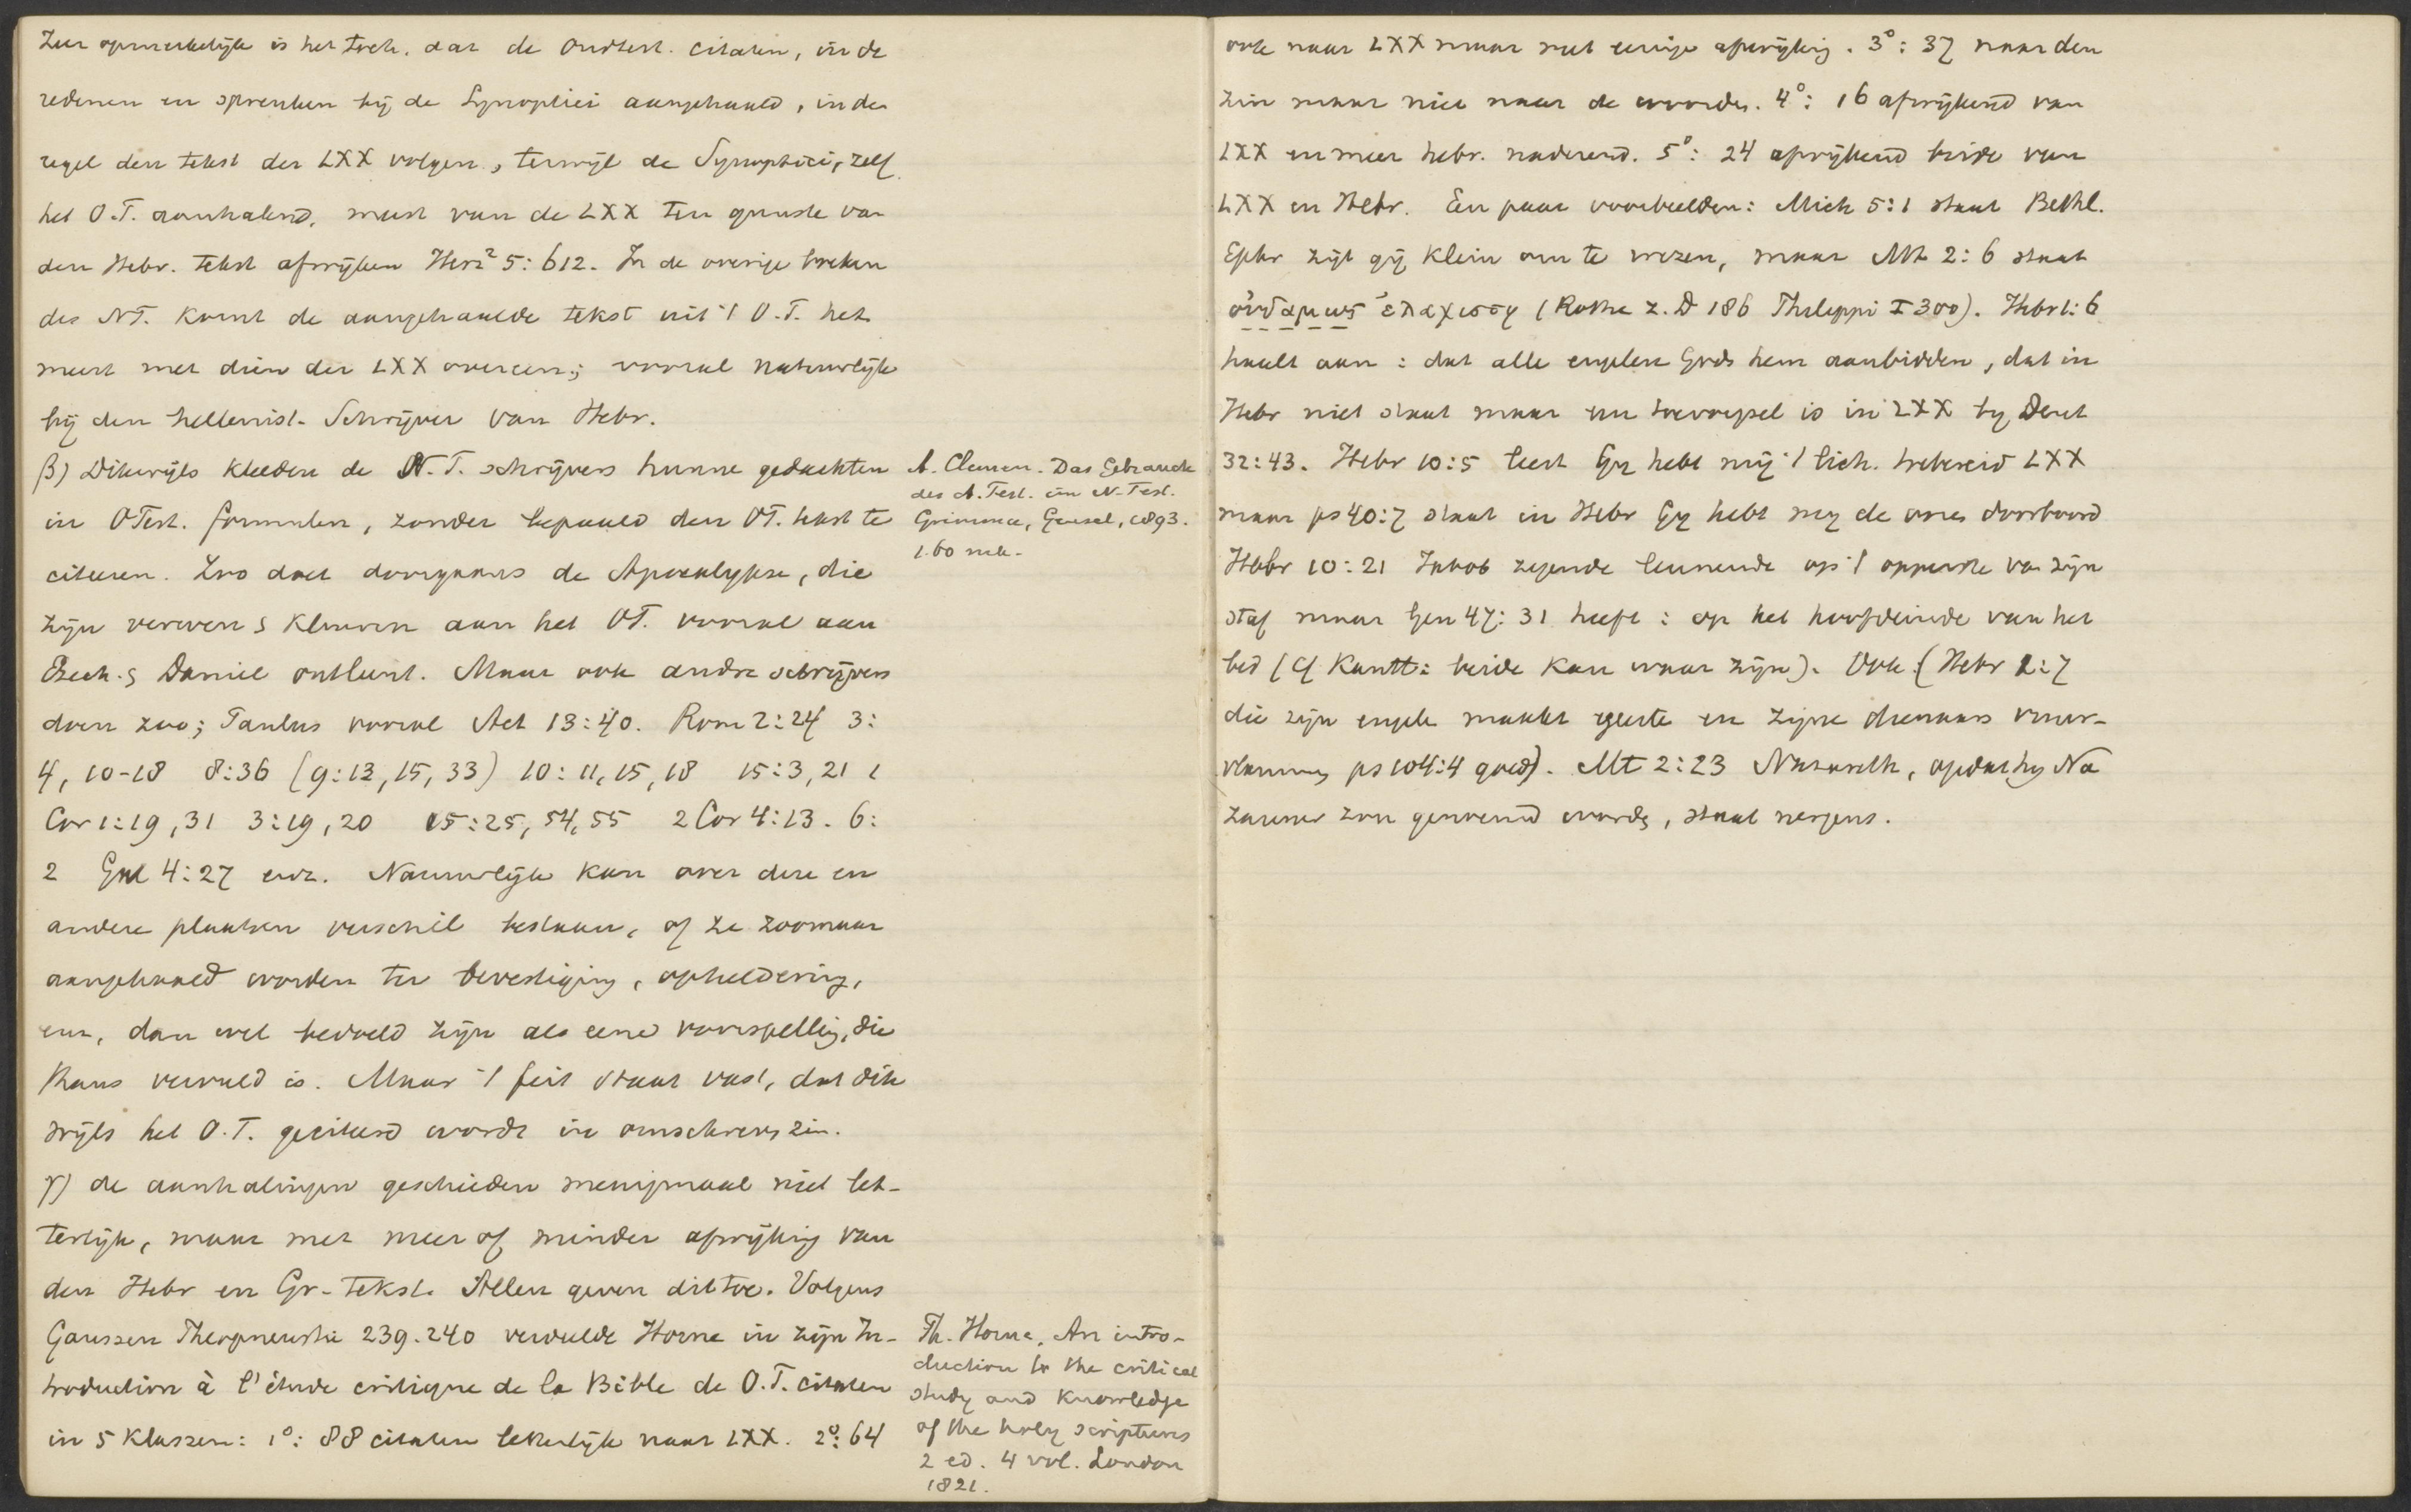 Zeer opmerkelijk is het toch, dat de Oudtest. citaten, in de
redenen en spreuken bij de Synoptici aangehaald, in den
regel den tekst der LXX volgen, terwijl de Synoptici, zelf
het O.T. aanhalend, meest van de LXX ten gunste van
den Hebr. tekst afwijken Herz² 5:612. In de overige boeken
des NT. komt de aangehaalde tekst uit 't O.T. het
meest met dien der LXX overeen; vooral natuurlijk
bij den hellenist. Schrijver van Hebr.
β) Dikwijls kleeden de N.T. schrijvers hunne gedachten
in OTest. formulen, zonder bepaald den OT. tekst te
citeeren. Zoo doet doorgaans de Apocalypse, die
zijn verwen & kleuren aan het OT. vooral aan
Ezech. & Daniel ontleent. Maar ook andre schrijvers
doen zoo; Paulus vooral Act 13:40. Rom 2:24 3:
4, 10-18 8:36 (9:12, 15, 33) 10:11, 15, 18 15:3, 21 1
Cor 1:19, 31 3:19, 20 15:25, 54, 55 2 Cor 4:13. 6:
2 Gal 4:27 enz. Natuurlijk kan over deze en
andere plaatsen verschil bestaan, of ze zoomaar
aangehaald worden ter bevestiging, opheldering,
enz, dan wel bedoeld zijn als eene voorspelling, die
thans vervuld is. Maar 't feit staat vast, dat dik
wijls het O.T. geciteerd wordt in omschreven zin.
γ) de aanhalingen geschieden menigmaal niet let-
terlijk, maar met meer of minder afwijking van
den Hebr en Gr- tekst. Allen geven dit toe. Volgens
Gaussen Theopneustie 239.240 verdeelde Horne in zijn In-
troduction à l'étude critique de la Bible de O.T. citaten
in 5 klassen: 1°: 88 citaten letterlijk naar LXX. 2°: 64
A. Clemen. Das Gebrauch
des A. Test. im N-Test.
Grimma, Gensel, 1893.
1.60 mk.
Th. Horne, An intro-
duction to the critical
study and Knowledge
of the holy scriptures
2 ed. 4 vol. London
1821.
ook naar LXX maar met eenige afwijking. 3°: 37 naar den
zin maar niet naar de woorden. 4°: 16 afwijkend van
LXX en meer hebr. naderend. 5°: 24 afwijkend beide van
LXX en Hebr. Een paar voorbeelden: Mich 5:1 staat Bethl.
Ephr zijt gij klein om te wezen, maar Mt 2:6 staat
οὐδαμως ἐλαχιστη (Rothe z. D 186 Philippi I 300). Hebr 1:6
haalt aan: dat alle engelen Gods hem aanbidden, dat in
Hebr niet staat maar een toevoegsel is in LXX by Deut
32:43. Hebr 10:5 leest Gy hebt mij 't lich. toebereid LXX
maar ps 40:7 staat in Hebr Gy hebt my de ooren doorboord
Hebr 10:21 Jakob zegende leunende op 't opperste van zijn
staf maar Gen 47:31 heeft: op het hoofdeinde van het
bed (Cf Kantt: beide kan waar zijn). Ook (Hebr 1:7
die zijn engele maakt geeste en zijne dienaars vuur-
vlammen ps 104:4 goed). Mt 2:23 Nazareth, opdat hy Na
zarener zou genoemd worden, staat nergens.